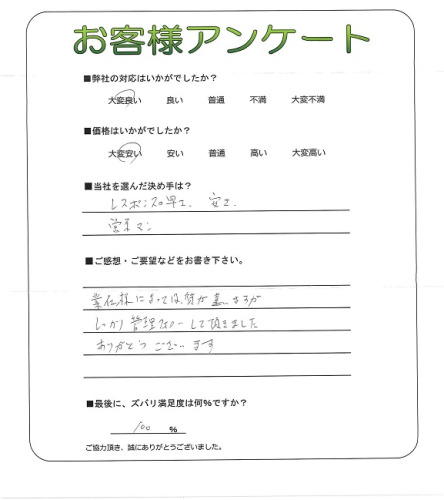 お客様アンケート
■弊社の対応はいかがでしたか？
大変良い 良い 普通 不満 大変不満
■価格はいかがでしたか？
大変安い 安い 普通 高い 大変高い
■当社を選んだ決め手は？
レスポンスの早さ、 安さ、
営業マン
■ご感想・ご要望などをお書き下さい。
業者様によっては質が
しっかり管理 して頂きました
ありがとうございます
■最後に、ズバリ満足度は何%ですか？
100 %
ご協力頂き、誠にありがとうございました。